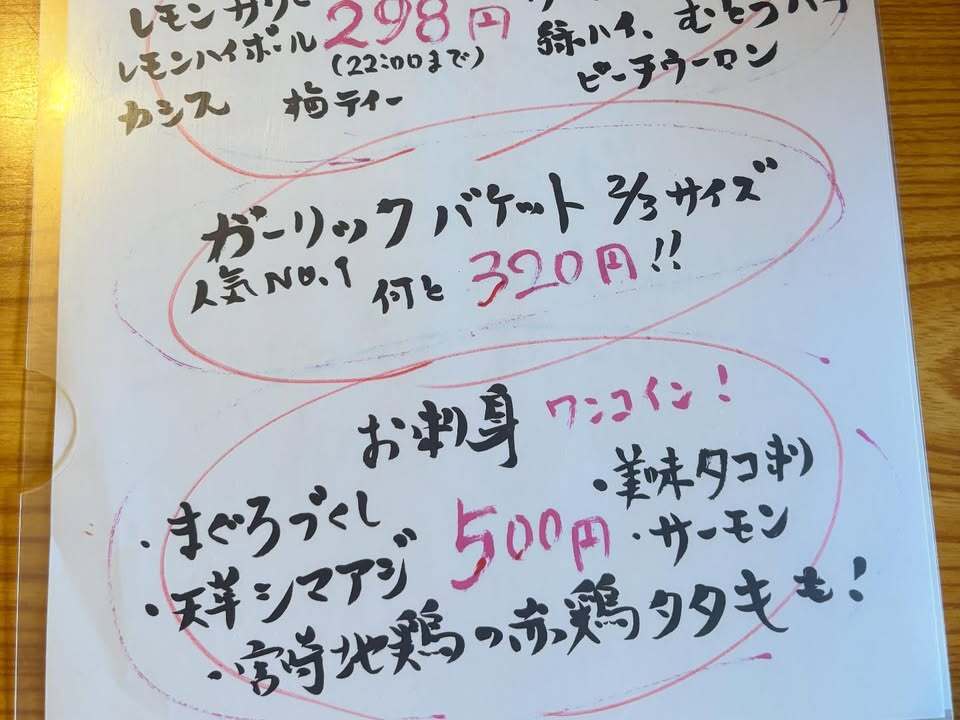 レモンサワー 298円
レモンハイボール (22:00まで) 緑ハイ、
カシス 梅ティー ピーチウーロン
ガーリックバケット 2/3サイズ
人気NO.1 何と 320円!!
お刺身 ワンコイン!
・まぐろづくし 500円 ・美味タコ刺
・天草シマアジ ・サーモン
・宮崎地鶏の赤鶏タタキも!